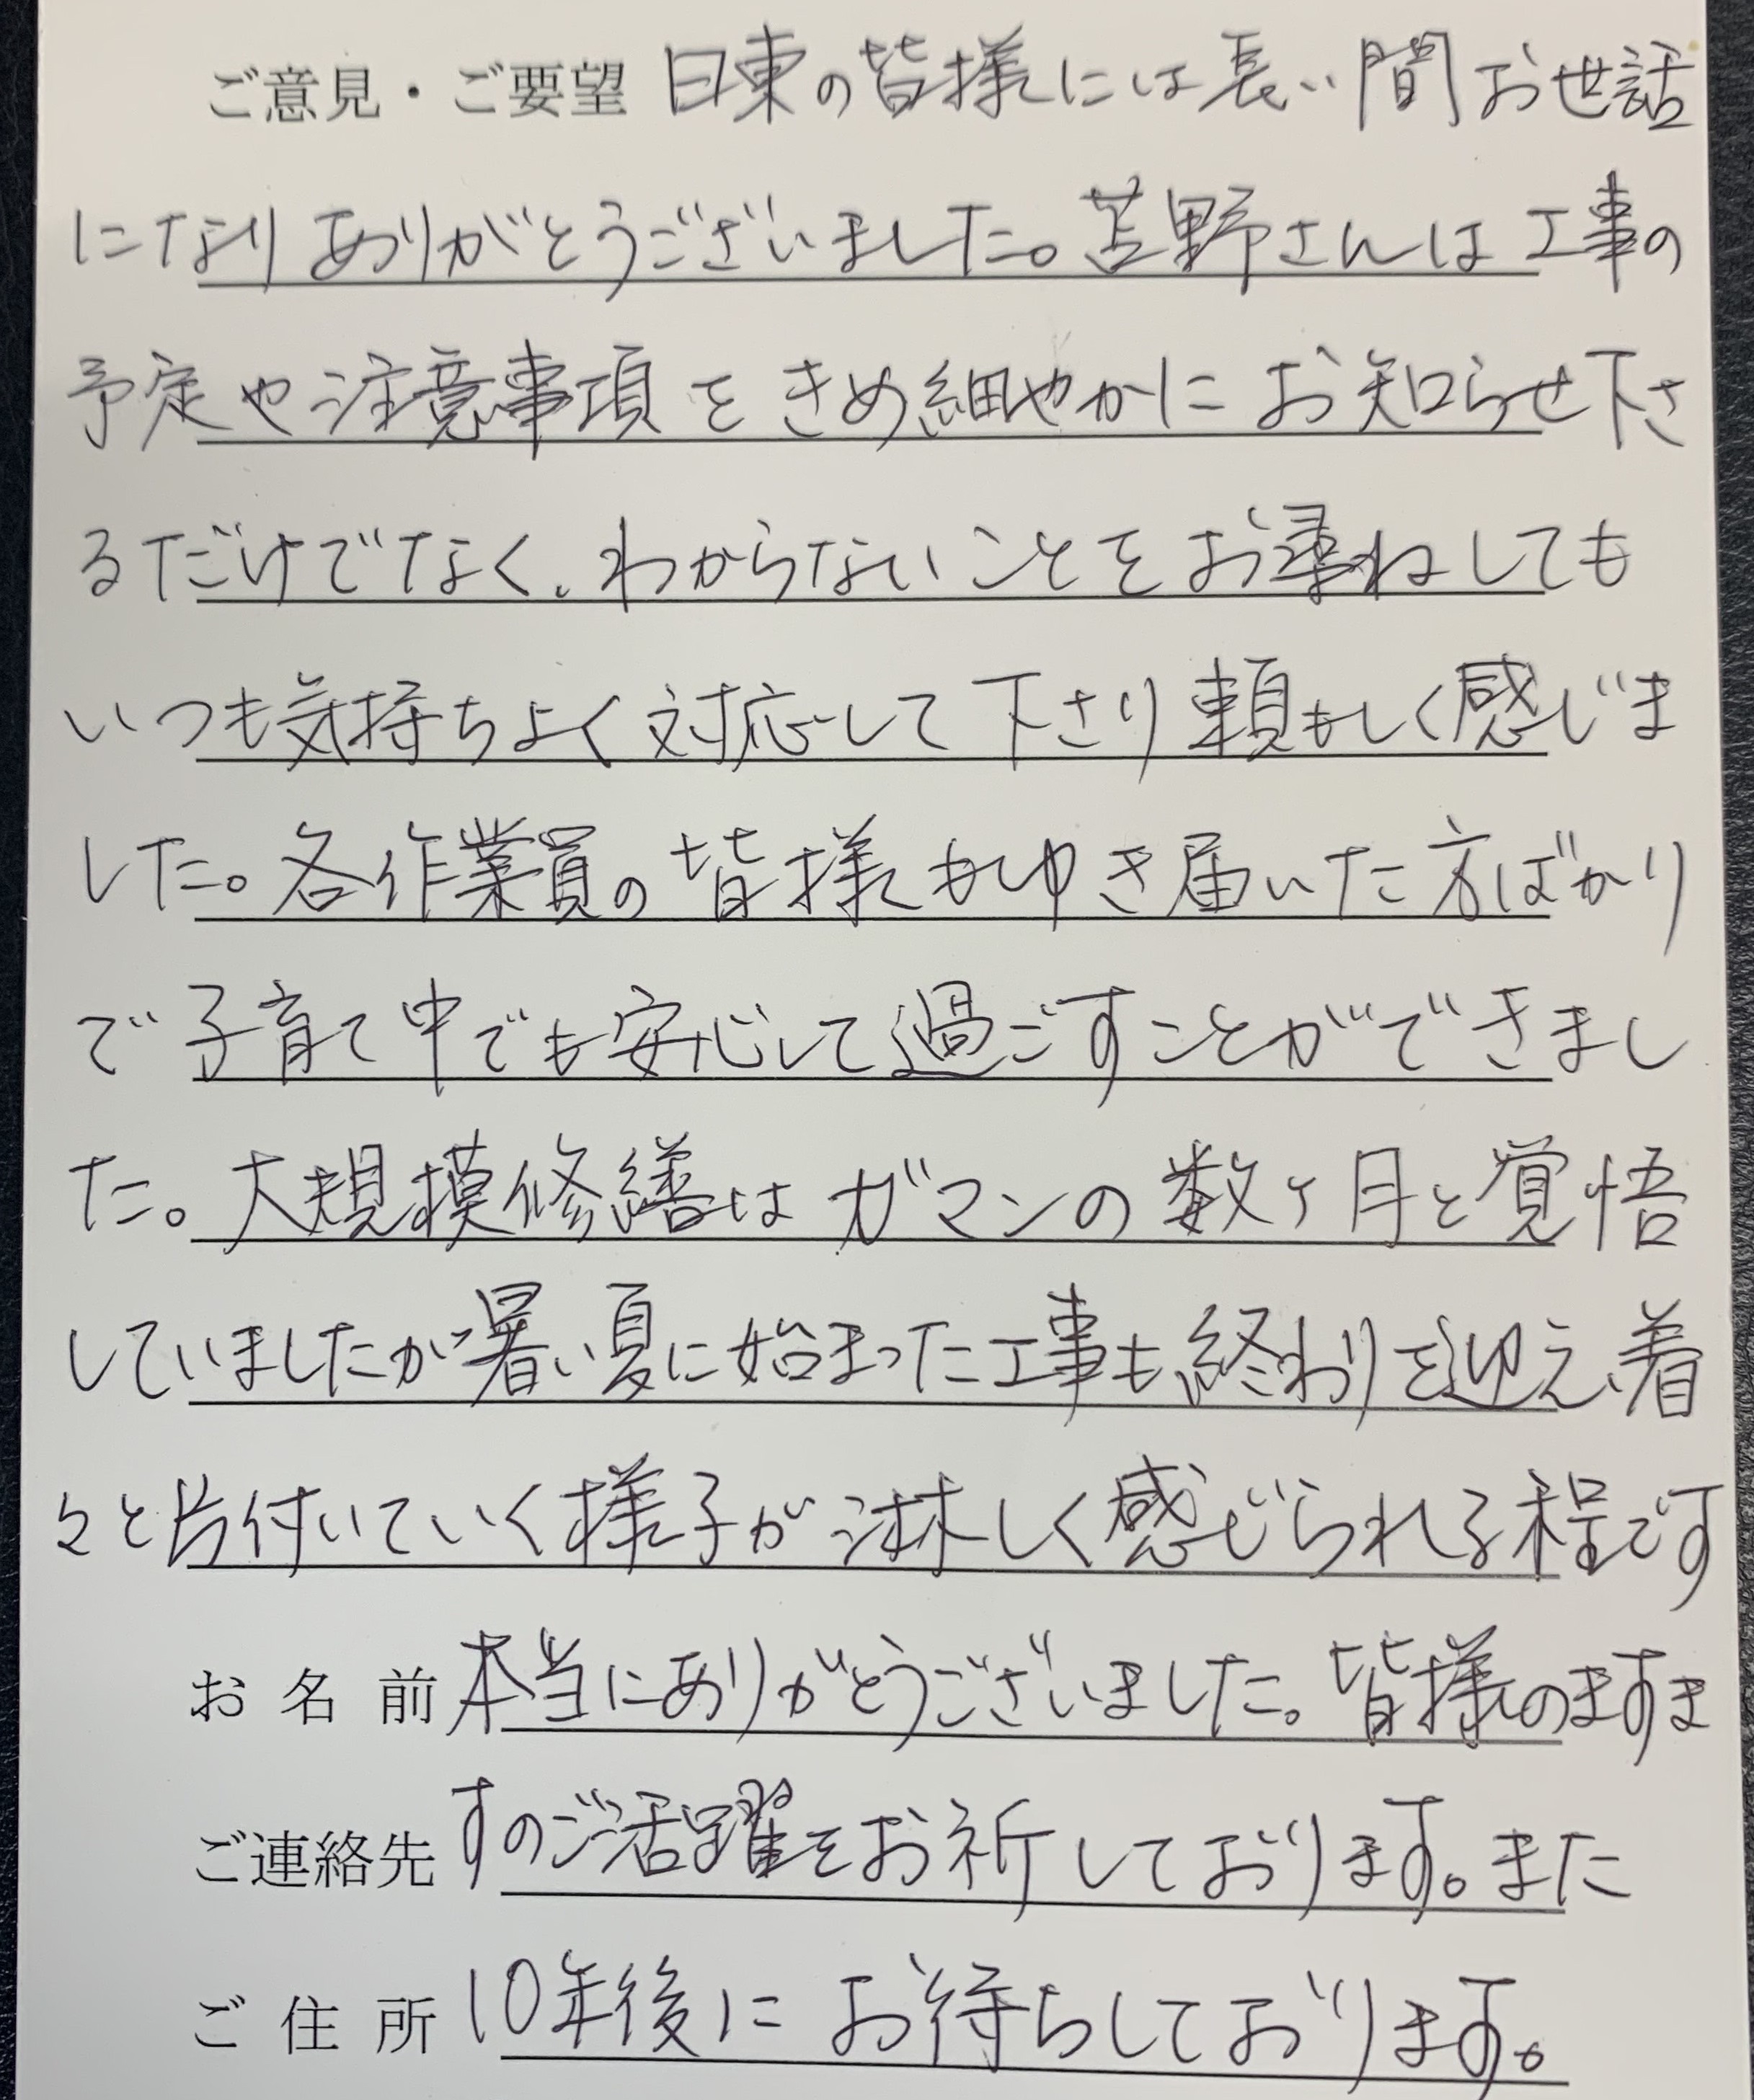 ご意見・ご要望 日東の皆様には長い間お世話
になりありがとうございました。苫野さんは工事の
予定や注意事項をきめ細やかにお知らせ下さ
るだけでなく、わからないことをお尋ねしても
いつも気持ちよく対応して下さり頼もしく感じま
した。各作業員の皆様もゆき届いた方ばかり
で子育て中でも安心して過ごすことができまし
た。大規模修繕はガマンの数ヶ月と覚悟
していましたが暑い夏に始まった工事も終わりを迎え、着
々と片付いていく様子が淋しく感じられる程です
お名前 本当にありがとうございました。皆様のますま
ご連絡先 すのご活躍をお祈しております。また
ご住所 10年後にお待ちしております。